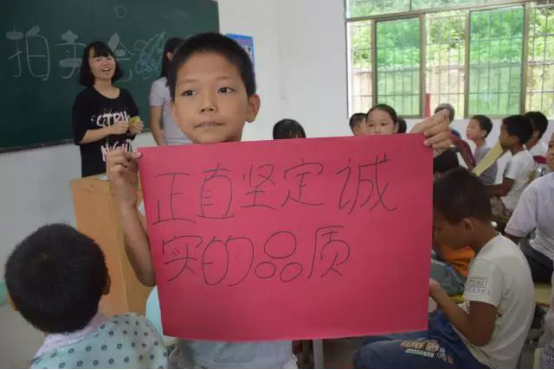 拍手会
正直坚定诚
实的品质